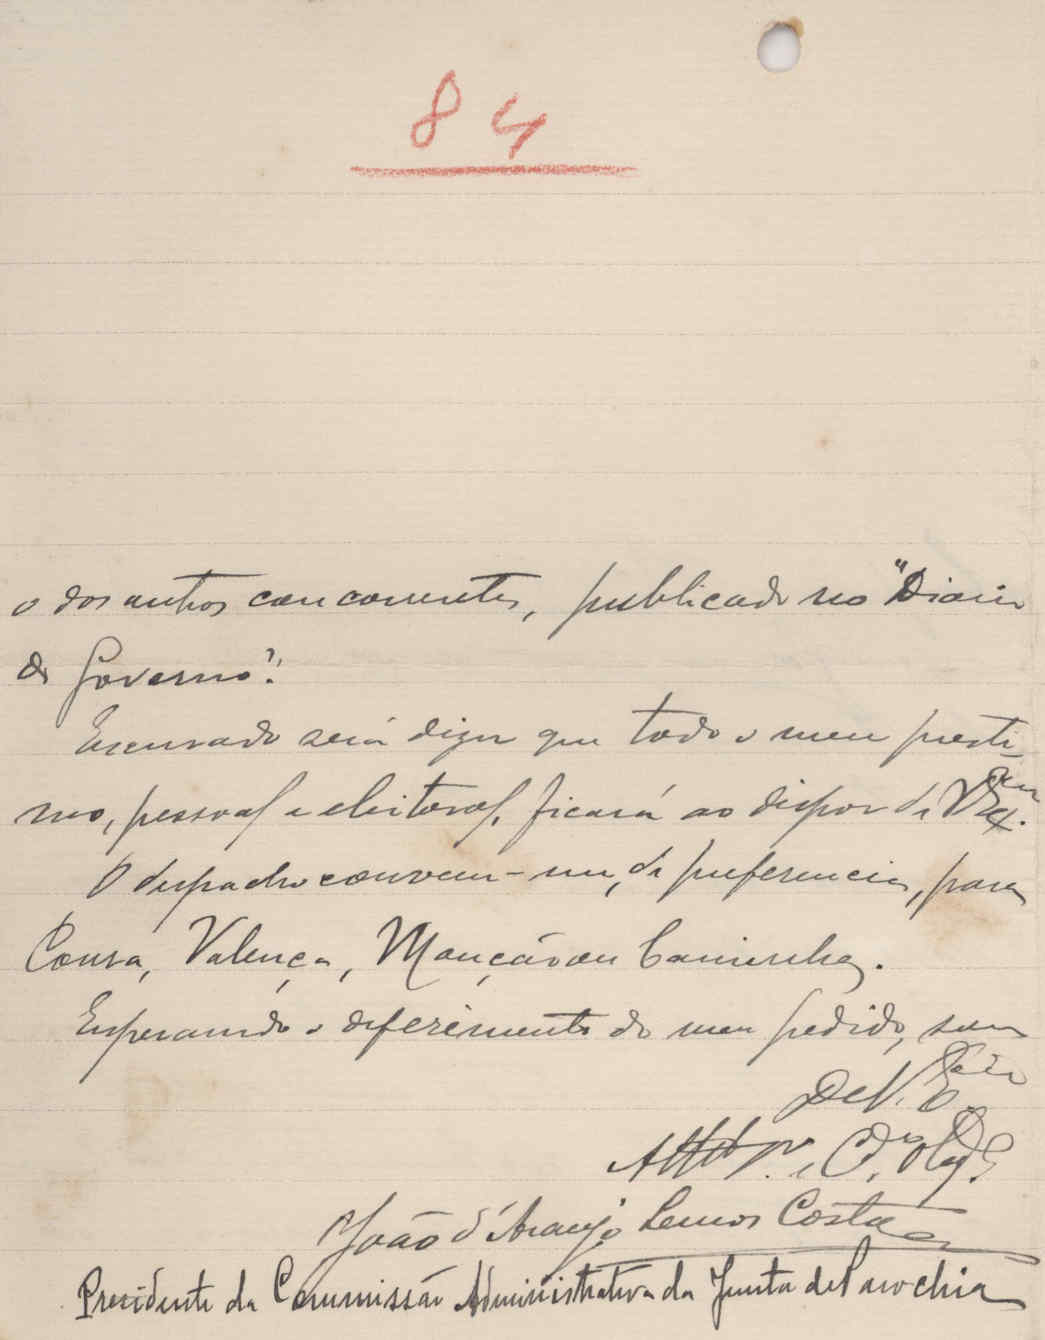 84
o dos outros concorrentes, publicado no "Diario
do Governo".
Escusado será dizer que todo o meu presti-
mo, pessoal e eleitoral, ficará ao dispor de V. Ex.cia
O despacho convem-me, de preferencia, para
Coura, Valença, Monção ou Caminha.
Esperando o deferimento do meu pedido, sou
De V. Ex.cia
Att.º V.or e Cr.º Obg.º
João d'Araujo Lemos Costa
Presidente da Commissão Administrativa da Junta de Parochia